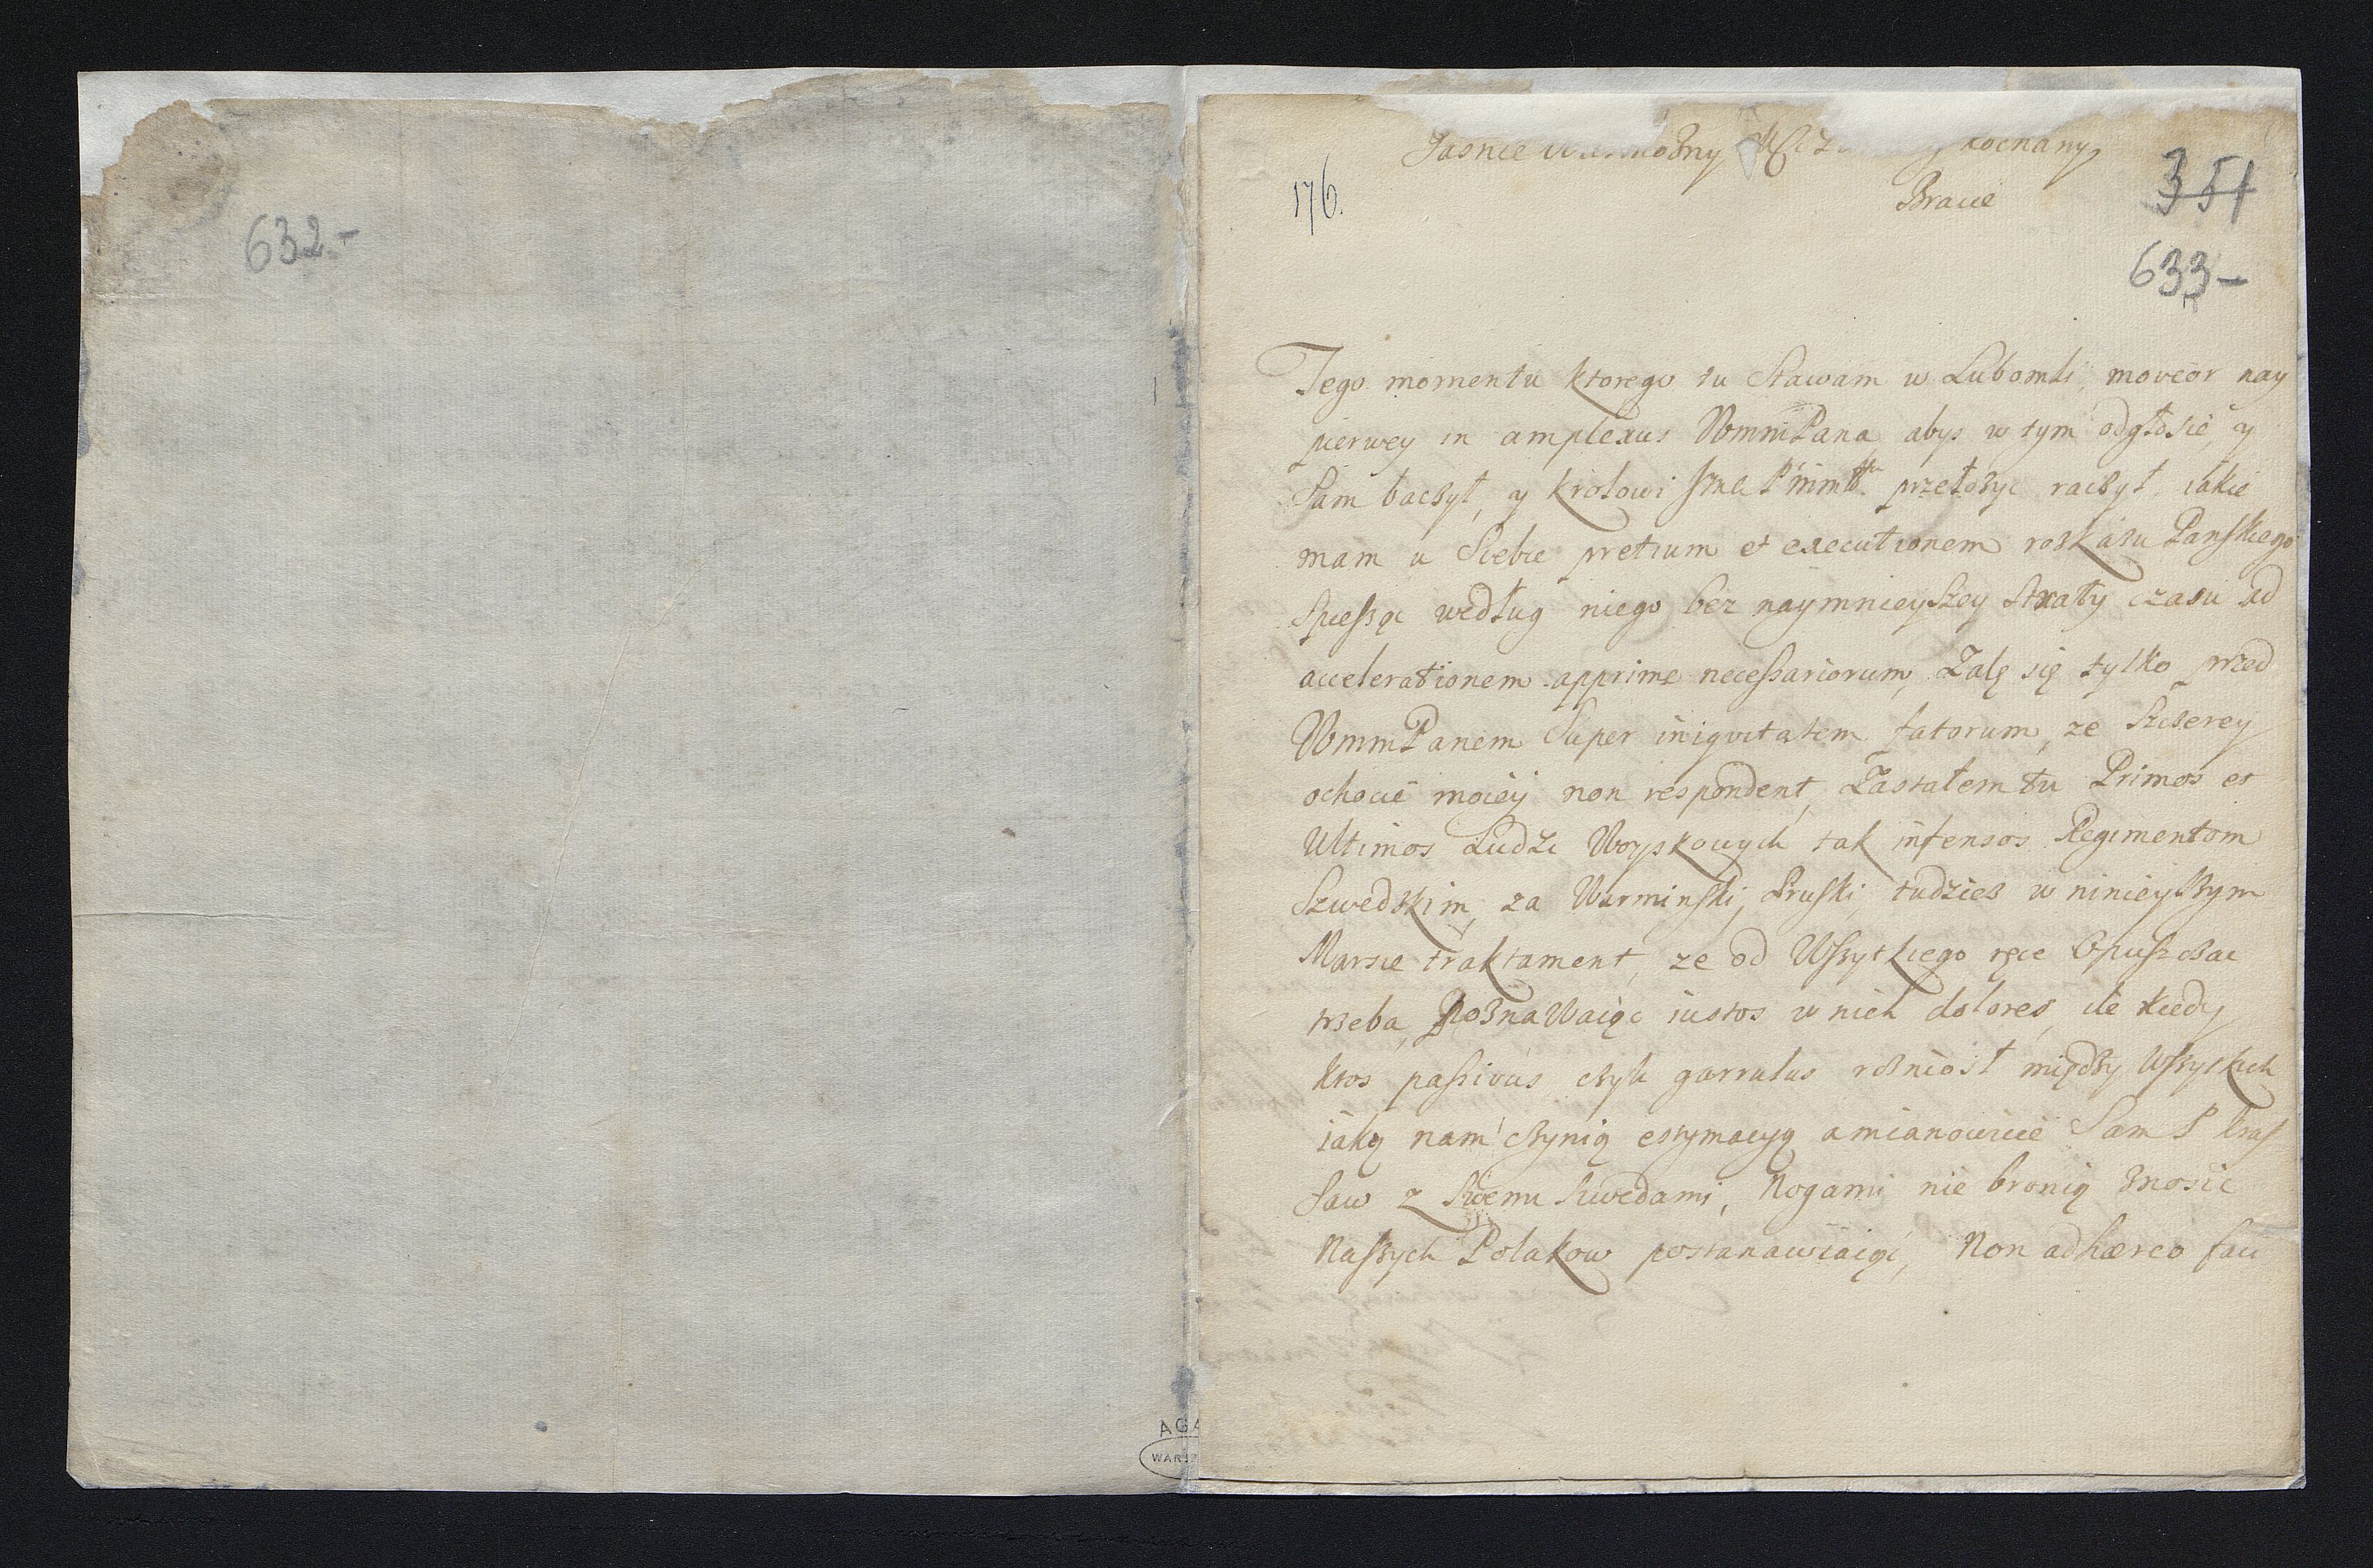 632-
Jasnie kochany
Bracie
176.
351
633-
Tego momentu ktorego tu stawam w Lubomli, moveor nay
pierwey in amplexus WmmPana abys w tym odgłosie y
Sam baczył, y krolowi przełozyc raczył, iakie
mam u Siebie pretium et executionem roskazu Panskiego
Spiesząc według niego bez naymnieyszey straty czasu ad
accelerationem apprime necessariorum, Zalę się tylko przed
WmmPanem Super iniquitatem fatorum, ze Szczerey
ochocie moiey non respondent, Zastałem tu Primos et
Ultimos Ludzi Woyskowych tak infensos Regimentom
Szwedskim, za Warminski, Pruski, tudziesz w ninieyszym
Marsie traktament, ze od Wszytkiego ręce Opuszczac
trzeba, PoznaWaiąc iustos w nich dolores, ile kiedy
ktos passivus czyli garrulus rozniosł między Wszytkich
iaką nam czynią estymacyą a mianowicie Sam P Kras
saw z Swemi Szwedami, Nogami nie bronią znosic
Naszych Polakow postanawiaiąc, Non adhæreo fau
AGA
WARSZ